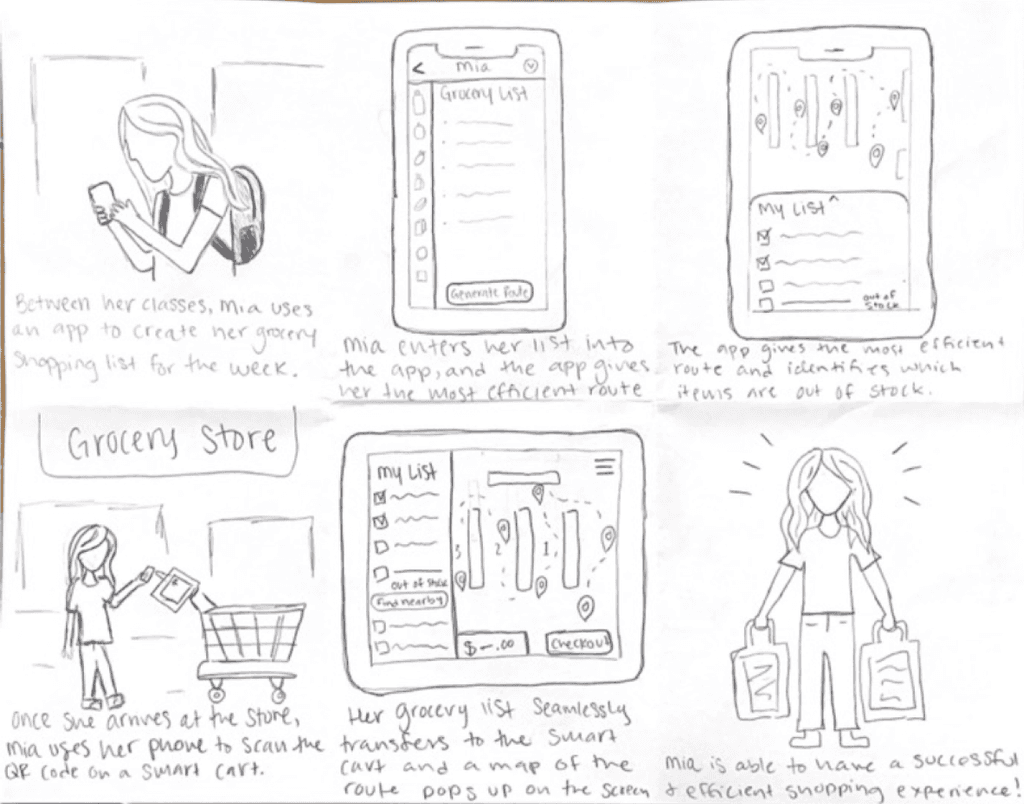 Between her classes, Mia uses
an app to create her grocery
shopping list for the week.
Mia
Grocery List
Generate Route
Mia enters her list into
the app, and the app gives
her the most efficient route
My List
out of
stock
The app gives the most efficient
route and identifies which
items are out of stock.
Grocery Store
Once she arrives at the store,
Mia uses her phone to scan the
QR code on a smart cart.
My List
out of stock
Find nearby
3 2 1
$-.00
Checkout
Her grocery list seamlessly
transfers to the smart
cart and a map of the
route pops up on the screen
Mia is able to have a successful
& efficient shopping experience!